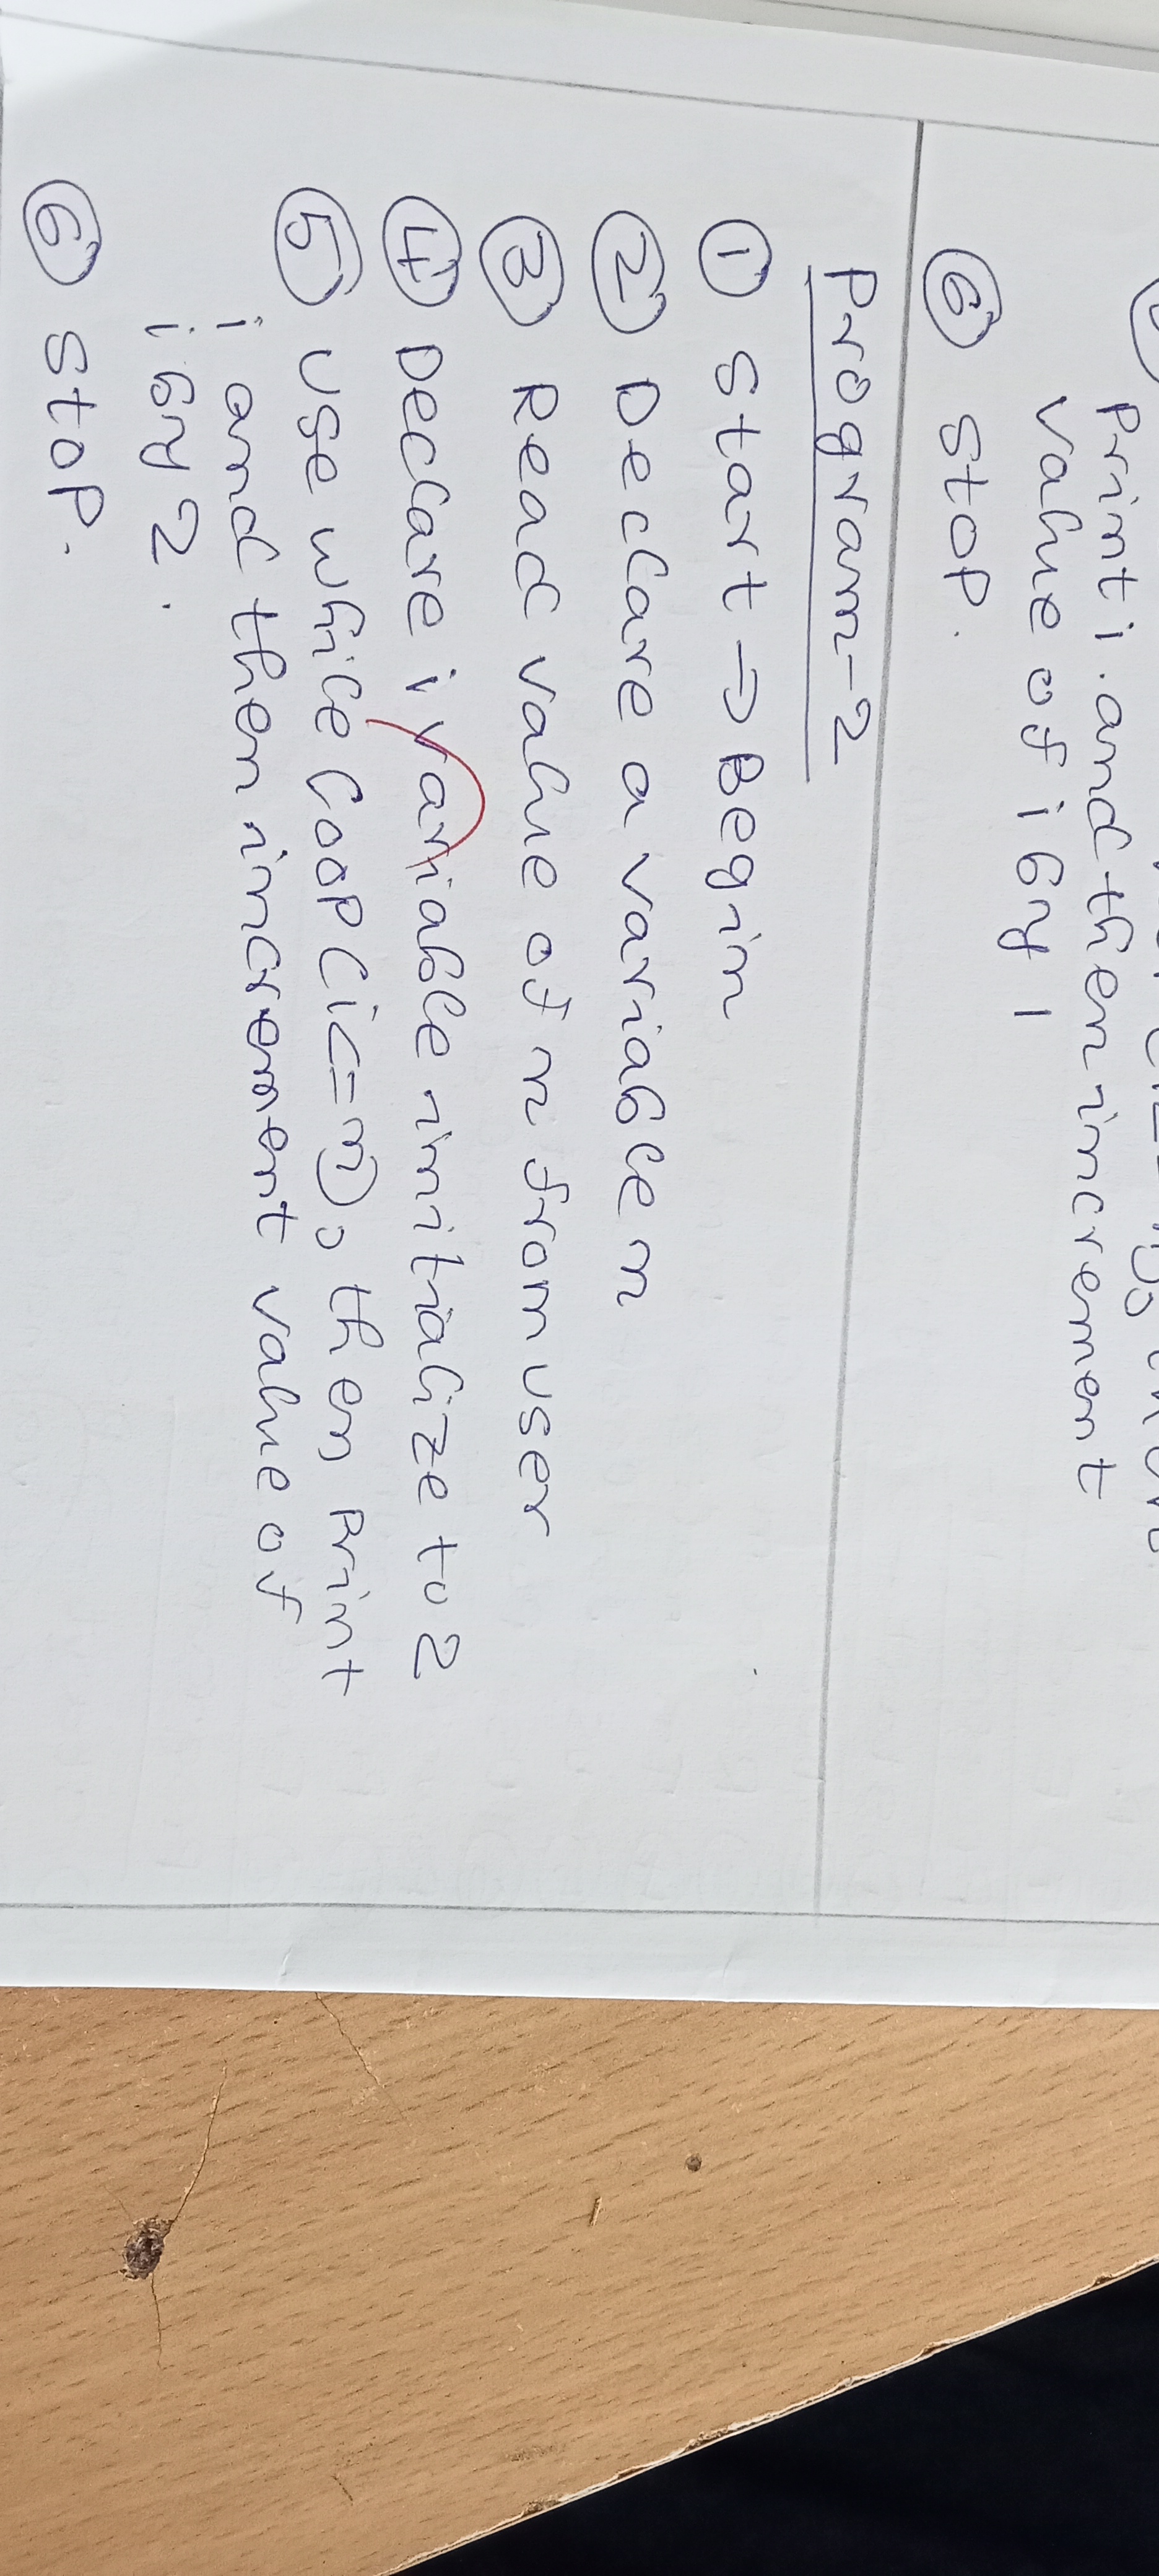 Print i. and then increment
value of i by 1
⑥ Stop.
Program-2
① Start → Begin
② Declare a variable n
③ Read value of n from user
④ Declare i variable initialize to 2
⑤ Use while loop (i<=n), then print
i and then increment value of
i by 2.
⑥ Stop.